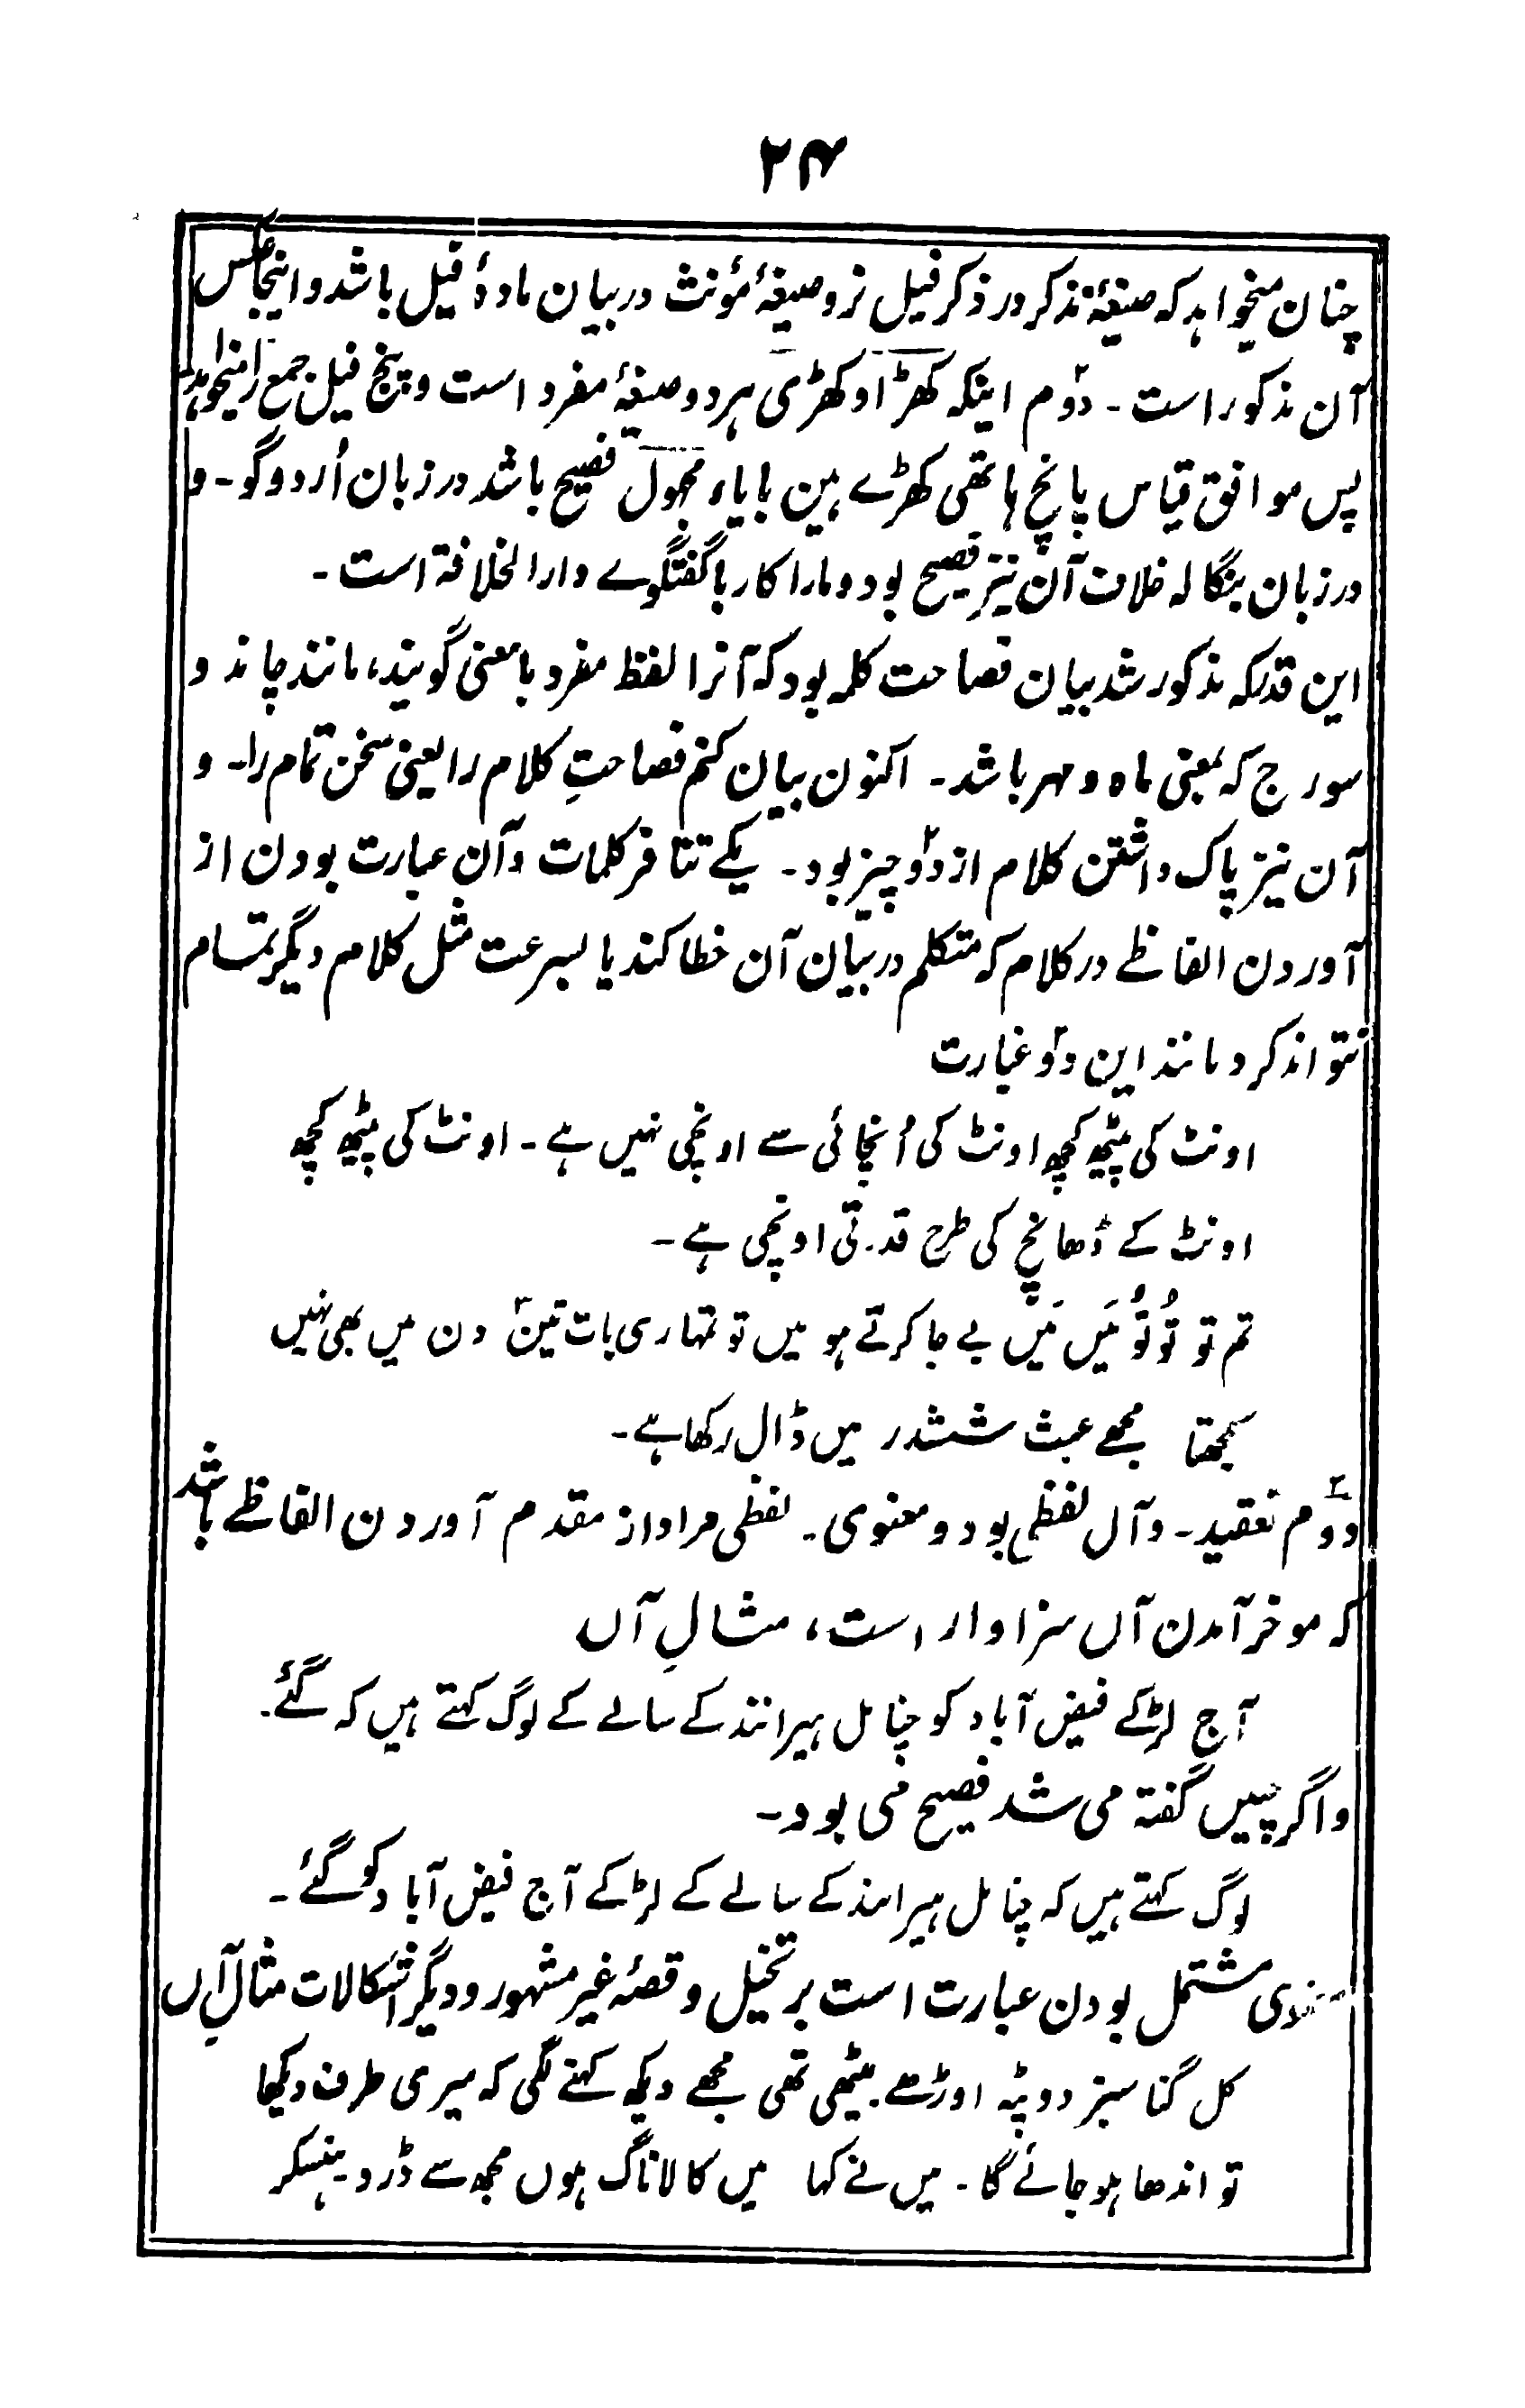 ۲۴
چنان میخواہد کہ صیغۂ مذکر در ذکر فیل نر و صیغۂ مؤنث در بیان مادۂ فیل باشد و اینجا عکس
آن مذکور است ۔ دوّم اینکہ کھڑا و کھڑی ہر دو صیغۂ مفرد است و پنج فیل جمع را میخواہد
پس موافق قیاس پانچ ہاتھی کھڑے ہین بایاء مجہول فصیح باشد در زبان اُردو گو ۔ و
در زبان بنگالہ خلاف آن نیز فصیح بود و مارا کار با گفتگوے دارالخلافۃ است ۔
این قدر کہ مذکور شد بیان فصاحت کلمہ بود کہ آنرا لفظ مفرد با معنی گویند، مانند چاند و
سورج کہ بمعنی ماہ و مہر باشد ۔ اکنون بیان کنم فصاحتِ کلام را یعنی سخن تمام را ۔ و
آن نیز پاک داشتن کلام از دو چیز بود ۔ یکے تنافر کلمات و آن عبارت بودن از
آوردن الفاظے در کلام کہ متکلم در بیان آن خطا کند یا بسرعت مثل کلام دیگر تمام
نتواند کرد مانند این دو عبارت
اونٹ کی پیٹھ کچھ اونٹ کی اُنچائی سے اونچی نہیں ہے ۔ اونٹ کی پیٹھ کچھ
اونٹ کے ڈھانچ کی طرح قدرتی اونچی ہے ۔
تم تو تُو تُو مَیں مَیں بے جا کرتے ہو میں تو تمہاری بات تین دن میں بھی نہیں
سمجھتا مجھے عبث ششدر میں ڈال رکھا ہے ۔
دوّم تعقید ۔ و آں لفظی بود و معنوی ۔ لفظی مراد از مقدم آوردن الفاظے باشد
کہ موخر آمدن آں سزاوار است، مثالِ آں
آج لڑکے فیض آباد کو چنامل ہیرانند کے سالے کے لوگ کہتے ہیں کہ گئے ۔
و اگر چنیں گفتہ می شد فصیح می بود ۔
لوگ کہتے ہیں کہ چنامل ہیرانند کے سالے کے لڑکے آج فیض آباد کو گئے ۔
معنوی مشتمل بودن عبارت است بر تخیل و قصۂ غیر مشہور و دیگر اشکالات مثالِ آں
کل گنا سبز دوپٹہ اوڑھے بیٹھی تھی مجھے دیکھ کہنے لگی کہ میری طرف دیکھا
تو اندھا ہو جائے گا ۔ میں نے کہا میں کالا ناگ ہوں مجھ سے ڈرو ۔ ہنسکر